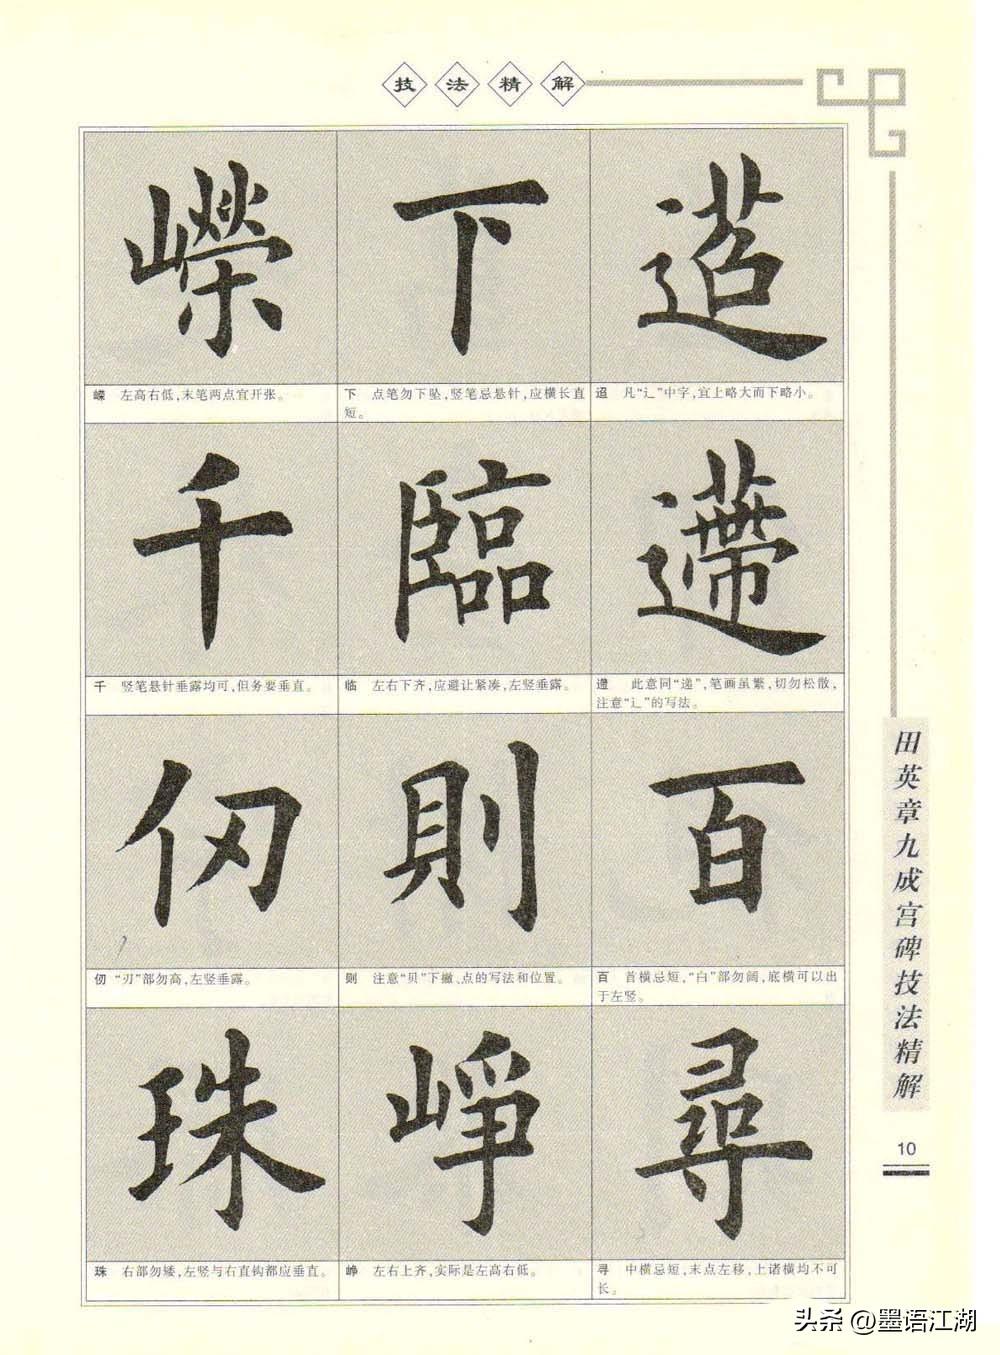 技法精解
嶸 下 迢
嵘 左高右低，末笔两点宜开张。
下 点笔勿下坠，竖笔忌悬针，应横长直
短。
迢 凡“辶”中字，宜上略大而下略小。
千 臨 遰
千 竖笔悬针垂露均可，但务要垂直。
临 左右下齐，应避让紧凑，左竖垂露。
遰 此意同“递”，笔画虽繁，切勿松散，
注意“辶”的写法。
仞 則 百
仞 “刃”部勿高，左竖垂露。
则 注意“贝”下撇、点的写法和位置。
百 首横忌短，“白”部勿阔，底横可以出
于左竖。
珠 崢 尋
珠 右部勿矮，左竖与右直钩都应垂直。
峥 左右上齐，实际是左高右低。
寻 中横忌短，末点左移，上诸横均不可
长。
田英章九成宫碑技法精解
10
头条 @墨语江湖